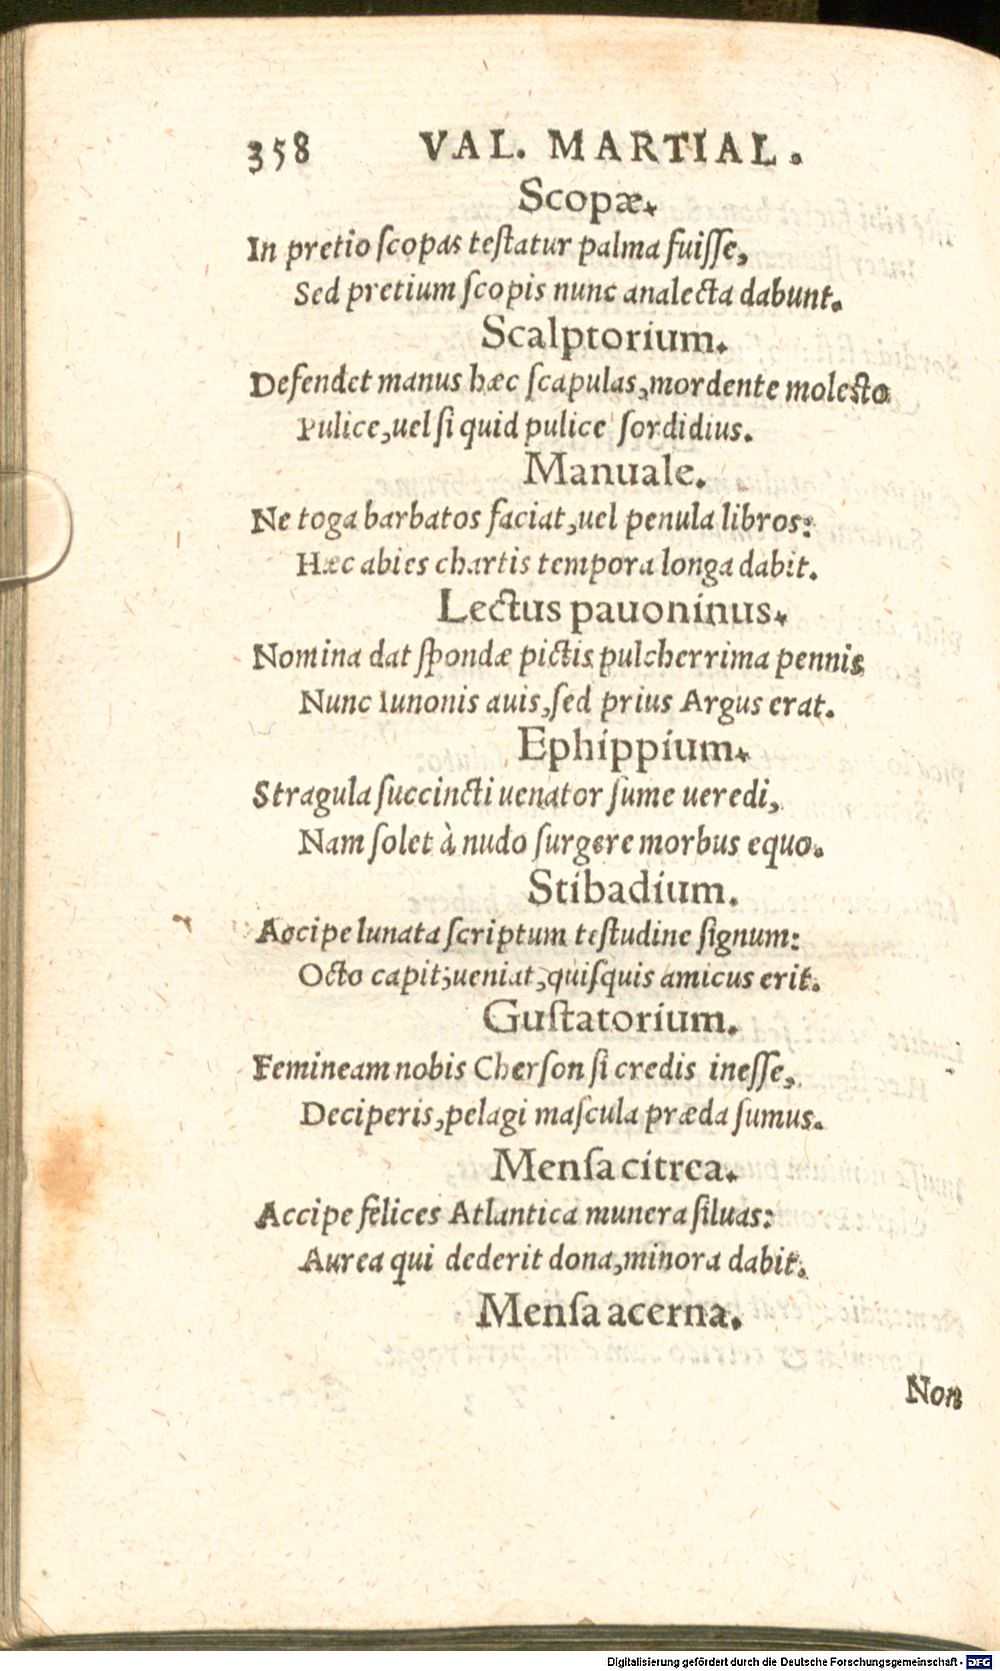 358 VAL. MARTIAL.
Scopæ.
In pretio ſcopas teſtatur palma fuiſſe,
Sed pretium ſcopis nunc analecta dabunt.
Scalptorium.
Defendet manus hæc ſcapulas, mordente moleſto
Pulice, uel ſi quid pulice ſordidius.
Manuale.
Ne toga barbatos faciat, uel penula libros:
Hæc abies chartis tempora longa dabit.
Lectus pauoninus.
Nomina dat ſpondæ pictis pulcherrima pennis
Nunc Iunonis auis, ſed prius Argus erat.
Ephippium.
Stragula ſuccincti uenator ſume ueredi,
Nam ſolet à nudo ſurgere morbus equo.
Stibadium.
Accipe lunata ſcriptum teſtudine ſignum:
Octo capit; ueniat, quiſquis amicus erit.
Guſtatorium.
Femineam nobis Cherſon ſi credis ineſſe,
Deciperis, pelagi maſcula præda ſumus.
Menſa citrea.
Accipe felices Atlantica munera ſiluas:
Aurea qui dederit dona, minora dabit.
Menſa acerna.
Non
Digitalisierung gefördert durch die Deutsche Forschungsgemeinschaft - DFG